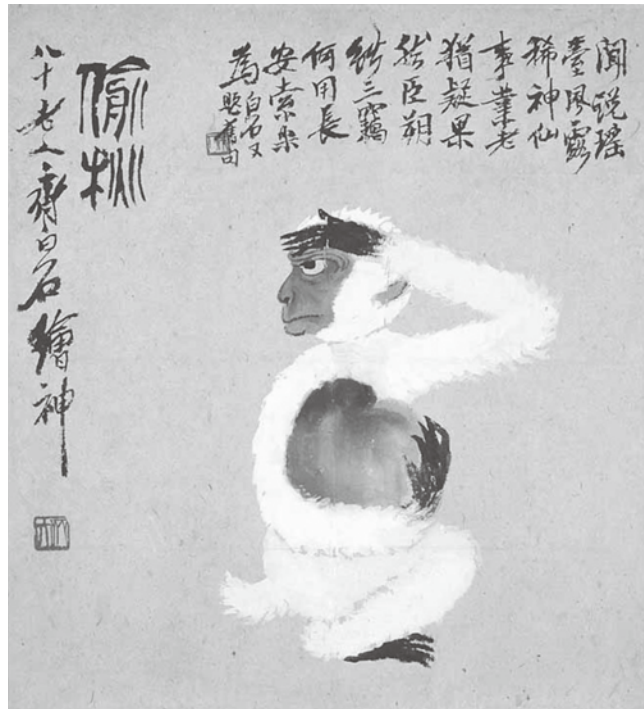 聞說瑤
臺風露
稀神仙
事業老
猶疑果
然臣朔
能三竊
何用長
安索米
為白石又
題舊句
偷桃
八十老人齊白石繪神